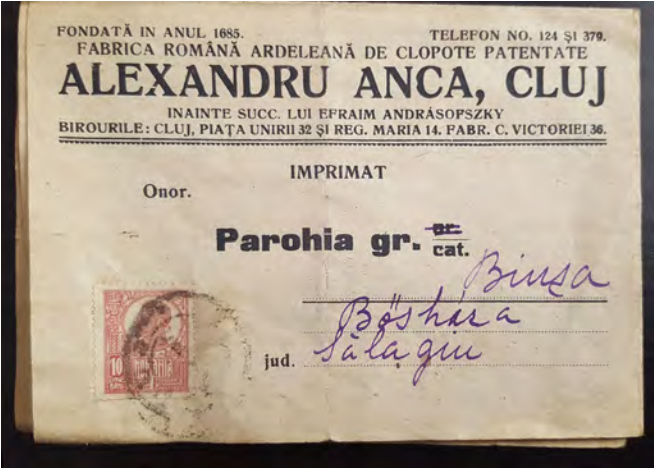 FONDATĂ IN ANUL 1685. TELEFON NO. 124 ȘI 379.
FABRICA ROMÂNĂ ARDELEANĂ DE CLOPOTE PATENTATE
ALEXANDRU ANCA, CLUJ
INAINTE SUCC. LUI EFRAIM ANDRÁSOFSZKY
BIROURILE: CLUJ, PIAȚA UNIRII 32 ȘI REG. MARIA 14. FABR. C. VICTORIEI 36.
IMPRIMAT
Onor.
Parohia gr. or. cat.
Binșa
Bősháza
jud. Sălagiu
10